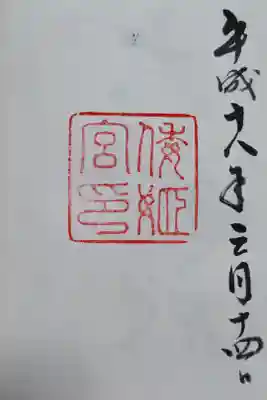 平成十八年三月十四日
倭姫
宮印